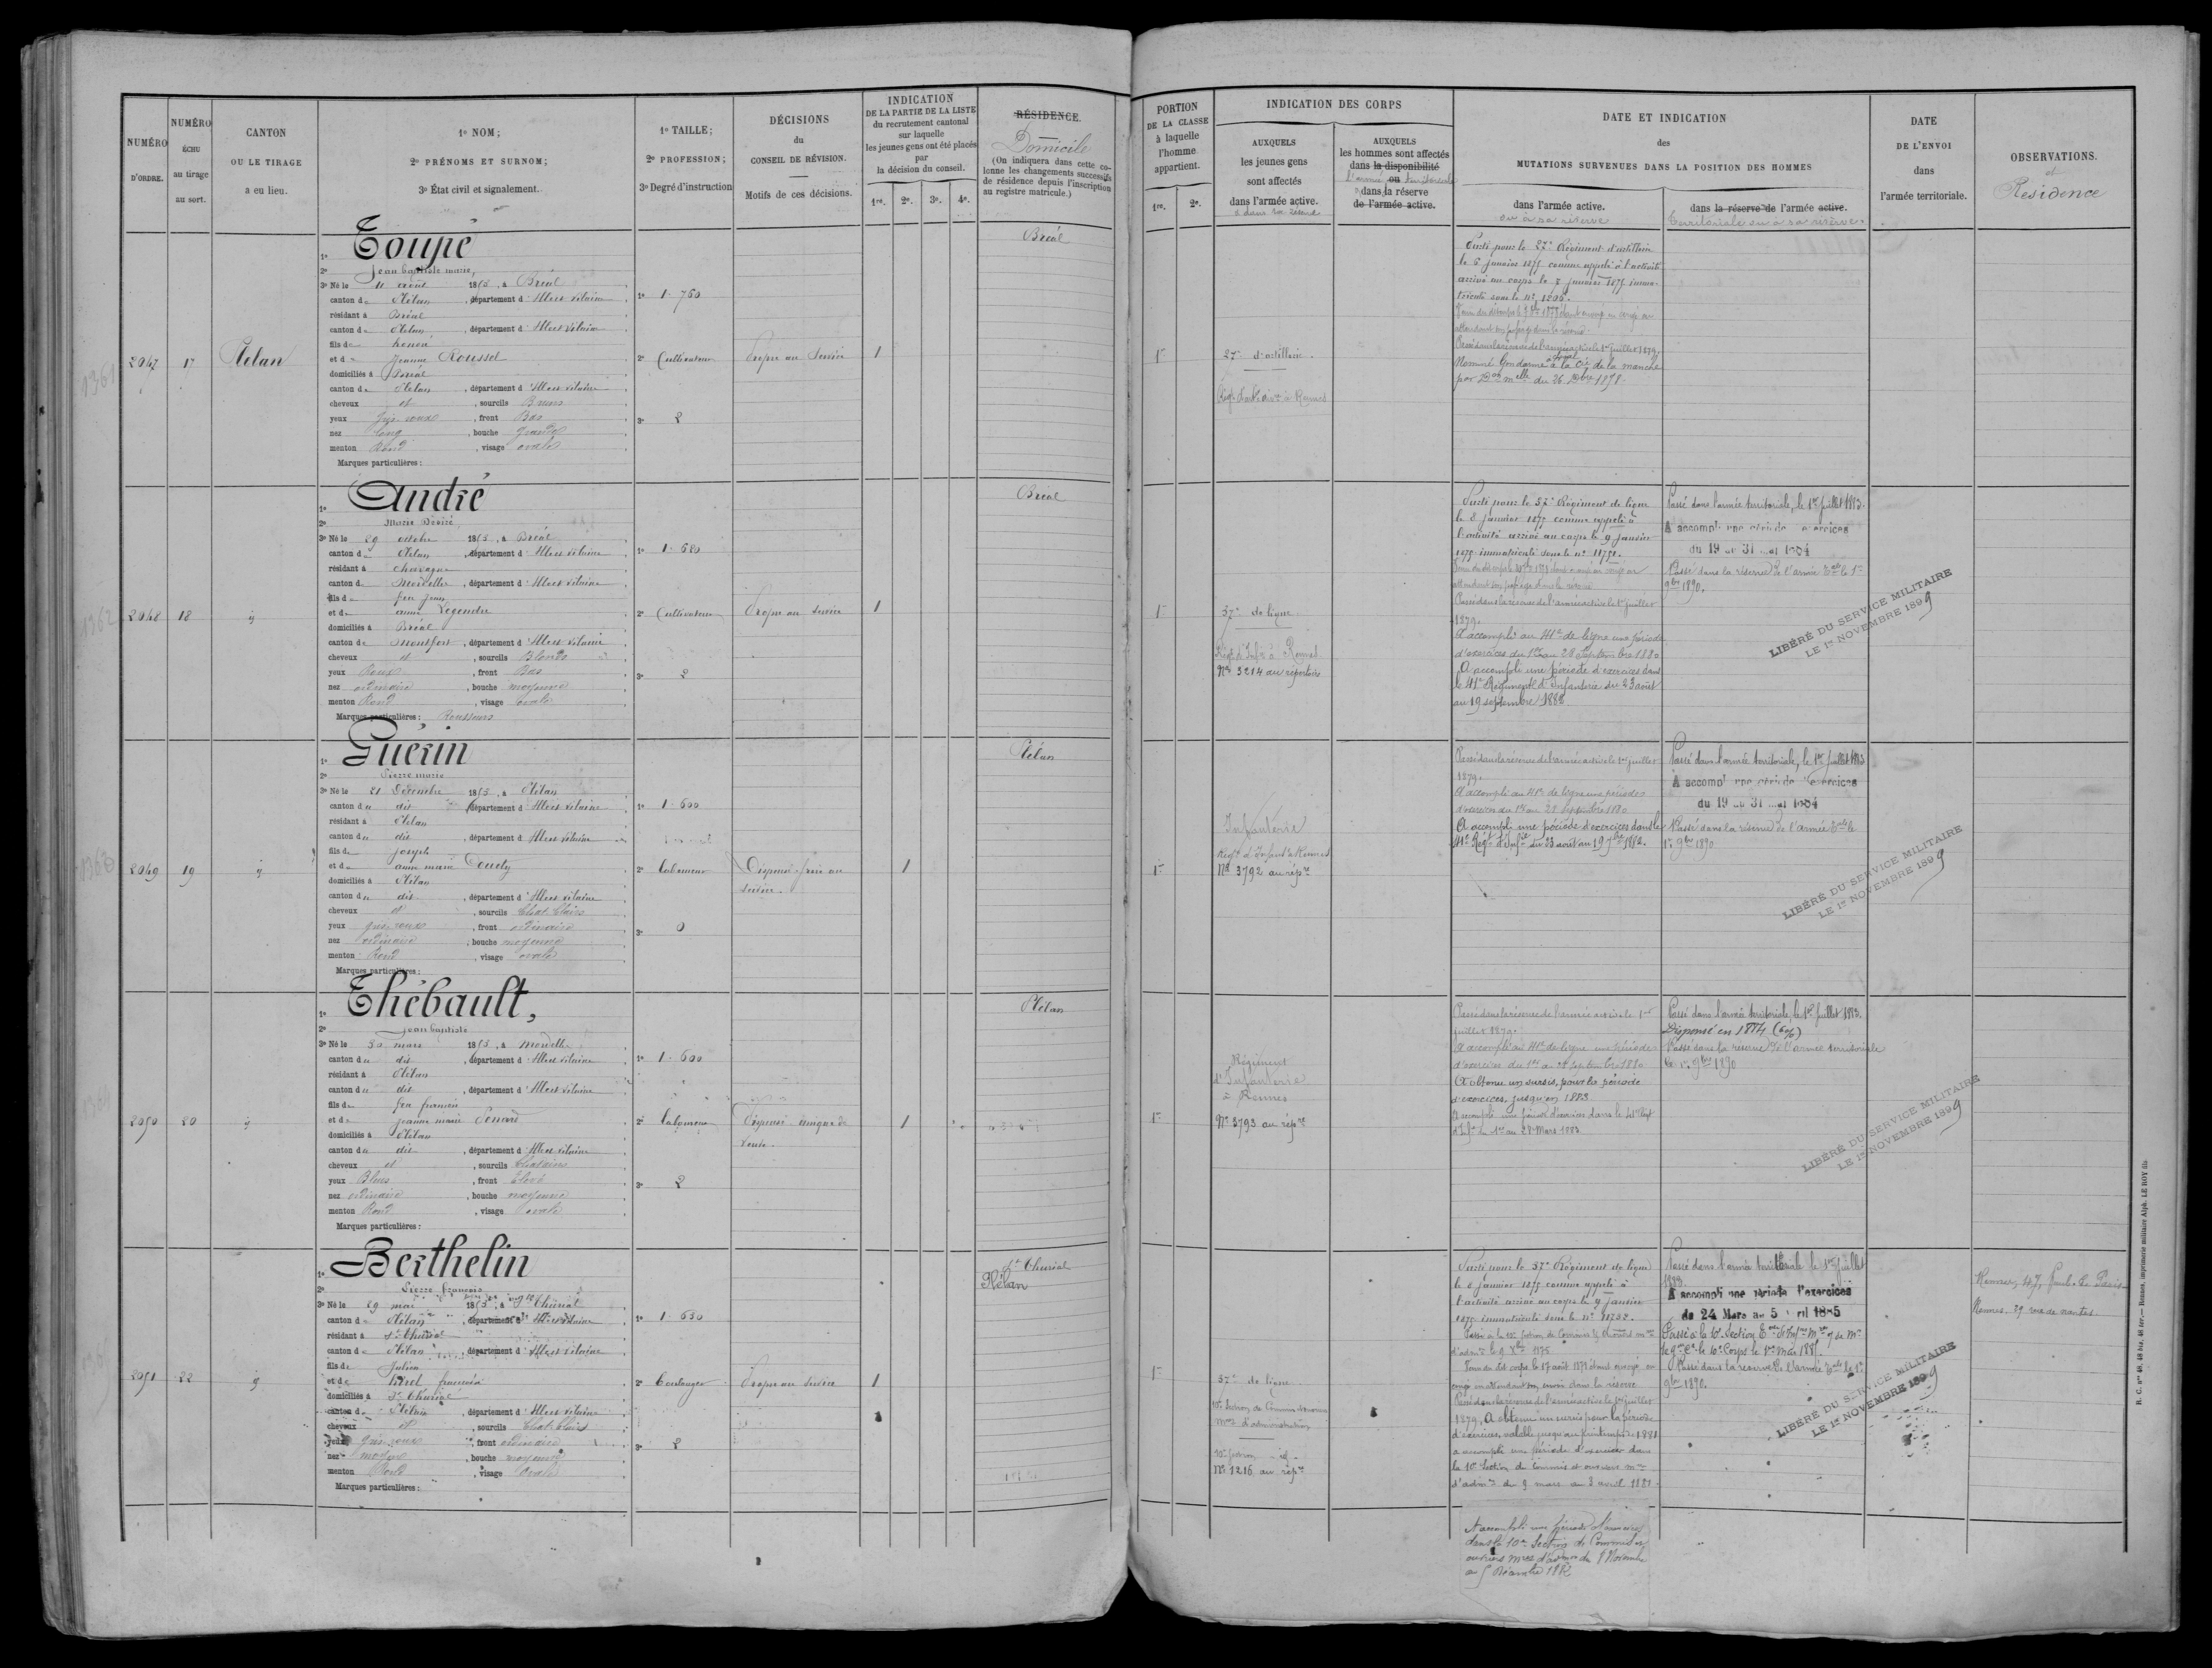 NUMÉRO
D'ORDRE.
NUMÉRO
ÉCHU
au tirage
au sort.
CANTON
OU LE TIRAGE
a eu lieu.
1º NOM;
2º PRÉNOMS ET SURNOM;
3º État civil et signalement.
1º TAILLE;
2º PROFESSION;
3º Degré d'instruction
DÉCISIONS
du
CONSEIL DE RÉVISION.
Motifs de ces décisions.
INDICATION
DE LA PARTIE DE LA LISTE
du recrutement cantonal
sur laquelle
les jeunes gens ont été placés
par
la décision du conseil.
1re. 2e. 3e. 4e.
RÉSIDENCE.
Domicile
(On indiquera dans cette co-
lonne les changements successifs
de résidence depuis l'inscription
au registre matricule.)
PORTION
DE LA CLASSE
à laquelle
l'homme
appartient.
1re. 2e.
INDICATION DES CORPS
AUXQUELS
les jeunes gens
sont affectés
dans l'armée active.
AUXQUELS
les hommes sont affectés
dans la disponibilité
ou
dans la réserve
de l'armée active.
DATE ET INDICATION
des
MUTATIONS SURVENUES DANS LA POSITION DES HOMMES
dans l'armée active.
ou à sa réserve
dans la réserve de l'armée active.
territoriale ou à sa réserve.
DATE
DE L'ENVOI
dans
l'armée territoriale.
OBSERVATIONS.
et
Résidence
2047 17 Plélan
1º Toupé
2º Jean baptiste marie,
3º Né le 11 1853, à Bréal
canton de Plélan, département d'Ille et Vilaine
résidant à Bréal
canton de Plélan, département d'Ille et Vilaine
fils de
et de Jeanne Roussel
domiciliés à Bréal
canton de Plélan, département d'Ille et Vilaine
cheveux et, sourcils Bruns
yeux gris roux, front Bas
nez long, bouche grande
menton Rond, visage ovale
Marques particulières:
1º 1. 760
2º Cultivateur
3º 2
Propre au Service
1
Bréal
1re
27e d'artillerie
Parti pour le 27e Régiment d'artillerie
le 6 janvier 1875 comme appelé à l'activité
arrivé au corps le 8 janvier 1875 imma-
triculé sous le nº 1206.
Passé dans la réserve de l'armée active le 1er juillet 1879.
Nommé Gendarme à la Cie de la manche
par Don melle du 26 Xbre 1878.
2048 18 ij
1º André
2º Marie Désiré
3º Né le 29 octobre 1853, à Bréal
canton de Plélan, département d'Ille et Vilaine
résidant à chavagne
canton de Mordelles, département d'Ille et Vilaine
fils de feu Jean
et de anne Legendre
domiciliés à Bréal
canton de Montfort, département d'Ille et Vilaine
cheveux et, sourcils Blonds
yeux Roux, front Bas
nez ordinaire, bouche moyenne
menton Rond, visage ovale
Marques particulières: Rousseurs
1º 1. 680
2º Cultivateur
3º 2
Propre au Service
1
Bréal
1re
37e de ligne
Régt d'Infie à Rennes
Nº 3214 au répertoire
Parti pour le 37e Régiment de ligne
le 8 janvier 1875 comme appelé à
l'activité arrivé au corps le 9 janvier
1875 immatriculé sous le nº 11751.
Passé dans la réserve de l'armée active le 1er juillet
1879.
A accompli au 41e de ligne une période
d'exercices du 1er au 28 Septembre 1880
A accompli une période d'exercices dans
le 41e Régiment d'Infanterie du 23 août
au 19 septembre 1882
Passé dans l'armée territoriale, le 1er Juillet 1883.
A accompli une période d'exercices
du 19 au 31 mai 1884
Passé dans la réserve de l'armée Tale le 1er
9bre 1890.
LIBÉRÉ DU SERVICE MILITAIRE
LE 1er NOVEMBRE 1899
2049 19 ij
1º Guérin
2º Pierre marie
3º Né le 21 Décembre 1853, à Plélan
canton du dit, département d'Ille et Vilaine
résidant à Plélan
canton du dit, département d'Ille et Vilaine
fils de joseph
et de anne marie
domiciliés à Plélan
canton du dit, département d'Ille et Vilaine
cheveux et, sourcils Chat. Clairs
yeux gris roux, front ordinaire
nez ordinaire, bouche moyenne
menton Rond, visage ovale
Marques particulières:
1º 1. 600
2º Laboureur
3º 0
Dispensé frère au
service.
1
Plélan
1re
Infanterie
Régt d'Infant à Rennes
Nº 3792 au répre
Passé dans la réserve de l'armée active le 1er juillet
1879.
A accompli au 41e de ligne une période
d'exercices du 1er au 28 septembre 1880
A accompli une période d'exercices dans le
41e Régt d'Infie du 23 août au 19 7bre 1882.
Passé dans l'armée territoriale, le 1er Juillet 1883
A accompli une période d'exercices
du 19 au 31 mai 1884
Passé dans la réserve de l'armée Tale le
1er 9bre 1890
LIBÉRÉ DU SERVICE MILITAIRE
LE 1er NOVEMBRE 1899
2050 20 ij
1º Thébault,
2º Jean baptiste
3º Né le 30 mars 1853, à Mordelles
canton du dit, département d'Ille et Vilaine
résidant à Plélan
canton du dit, département d'Ille et Vilaine
fils de feu françois
et de jeanne marie
domiciliés à Plélan
canton du dit, département d'Ille et Vilaine
cheveux et, sourcils Chatains
yeux Bleus, front Elevé
nez ordinaire, bouche moyenne
menton Rond, visage ovale
Marques particulières:
1º 1. 600
2º Laboureur
3º 2
Dispensé unique de
veuve.
1
Plélan
1re
Régiment
d'Infanterie
à Rennes
Nº 3793 au répre
Passé dans la réserve de l'armée active le 1er
juillet 1879.
A accompli au 41e de ligne une période
d'exercices du 1er au 28 septembre 1880
A obtenu un sursis, pour la période
d'exercices, jusqu'en 1883
A accompli une période d'exercices dans le 41e Régt
d'Infie du 1er au 28 Mars 1883
Passé dans l'armée territoriale, le 1er Juillet 1883.
Dispensé en 1884 (6%)
Passé dans la réserve de l'armée territoriale
le 1er 9bre 1890
LIBÉRÉ DU SERVICE MILITAIRE
LE 1er NOVEMBRE 1899
2051 22 ij
1º Berthelin
2º Pierre françois
3º Né le 29 mai 1853, à St Thurial
canton de Plélan, département d'Ille et Vilaine
résidant à St Thurial
canton de Plélan, département d'Ille et Vilaine
fils de Julien
et de françoise
domiciliés à St Thurial
canton de Plélan, département d'Ille et Vilaine
cheveux et, sourcils Chat. Clairs
yeux gris roux, front ordinaire
nez moyen, bouche moyenne
menton Rond, visage ovale
Marques particulières:
1º 1. 630
2º Boulanger
3º 2
Propre au Service
1
St Thurial
Plélan
1re
37e de ligne
10e Section de Commis et ouvriers
mres d'administration
Nº 1216 au répre
Parti pour le 37e Régiment de ligne
le 8 janvier 1875 comme appelé à
l'activité arrivé au corps le 9 janvier
1875 immatriculé sous le nº 11752.
Passé dans la réserve de l'armée active le 1er juillet
1879, A obtenu un sursis pour la période
d'exercices, valable jusqu'au printemps de 1881
a accompli une période d'exercices dans
la 10e Section de commis et ouvriers mres
d'admon du 9 mars au 5 avril 1881
A accompli une période d'exercices
dans la 10e Section de Commis et
ouvriers mres d'admon du 8 Novembre
au 5 Décembre 1882
Passé dans l'armée territoriale le 1er juillet
1883.
A accompli une période d'exercices
du 24 Mars au 5 avril 1885
Passé dans la réserve de l'armée Tale le 1er
9bre 1890.
LIBÉRÉ DU SERVICE MILITAIRE
LE 1er NOVEMBRE 1899
Rennes, 47, faub. de Paris
Rennes. 29 rue de nantes
R. C. nos 46, 46 bis, 46 ter.— Rennes, imprimerie militaire Alph. LE ROY fils